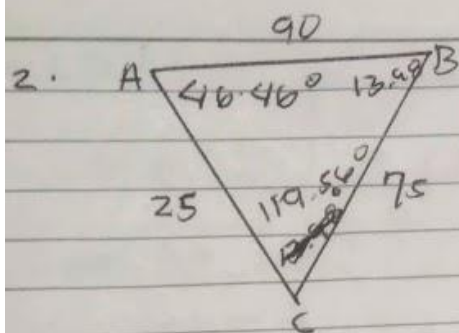 90
2. A B
46.46° 13.98
25 119.56° 75
C